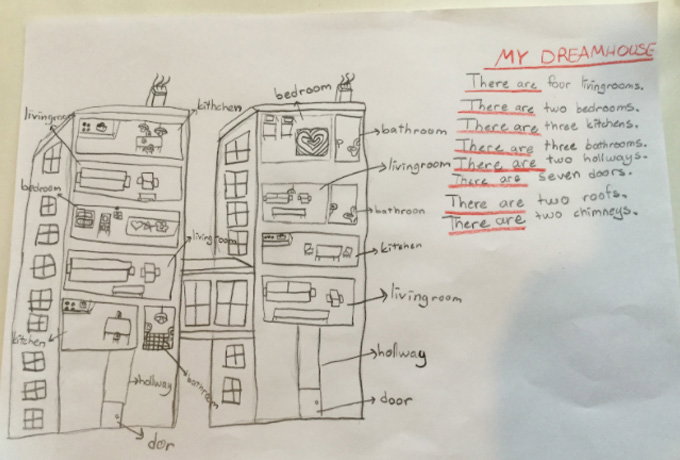 MY DREAMHOUSE
There are four livingrooms.
There are two bedrooms.
There are three kitchens.
There are three bathrooms.
There are two hollways.
There are seven doors.
There are two roofs.
There are two chimneys.
livingroom
kithchen
bedroom
livingroom
kitchen
hollway
bathroom
door
bedroom
bathroom
livingroom
bathroon
kitchen
livingroom
hollway
door